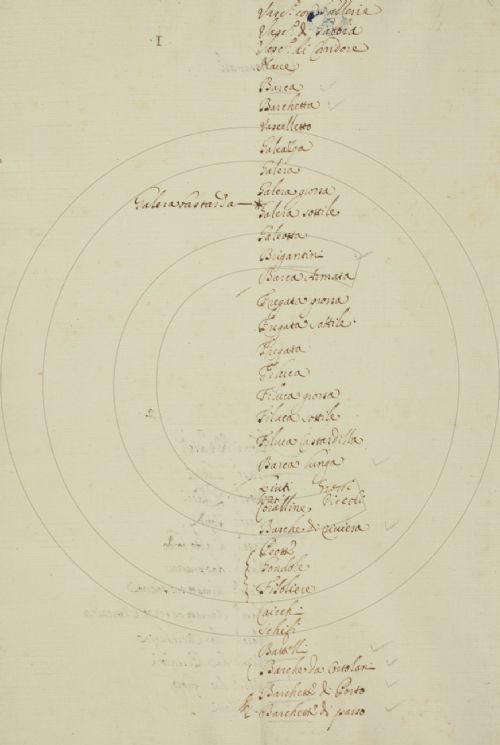 Vasc.º con Pollena
Vasc.º di Gabbia
Vasc.º di Candore
I
Nave
Barca
Barchetta
Vascelletto
Galeazza
Galera
Galera grossa
Galera bastarda
Galera sottile
Galeotta
Brigantin
Barca Armata
Fregata grossa
Fregata sottile
Fregata
Filuca
Filuca grossa
Filuca sottile
Filuca bastardella
Barca lunga
Liuti Grossi
Coralline Piccoli
Barche di riviera
Peott
Gondole
Fisoliere
Caicchi
Schifi
Battelli
Barche da Ortolan
Barchett di Porto
Barchett di passo